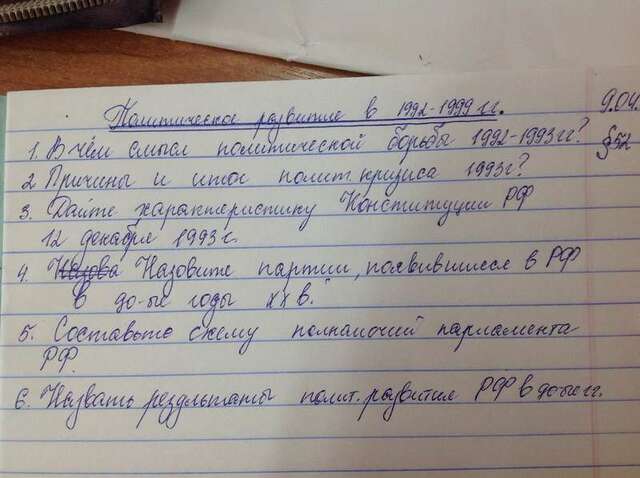 Политическое развитие в 1992-1999 гг. 9.04.
1. В чём смысл политической борьбы 1992-1993 гг? §52
2. Причины и итог полит. кризиса 1993 г?
3. Дайте характеристику Конституции РФ
12 декабря 1993 г.
4. Назовите партии, появившиеся в РФ
в 90-ые годы XX в.
5. Составьте схему полномочий парламента
РФ.
6. Назвать результаты полит. развития РФ в 90-ые гг.